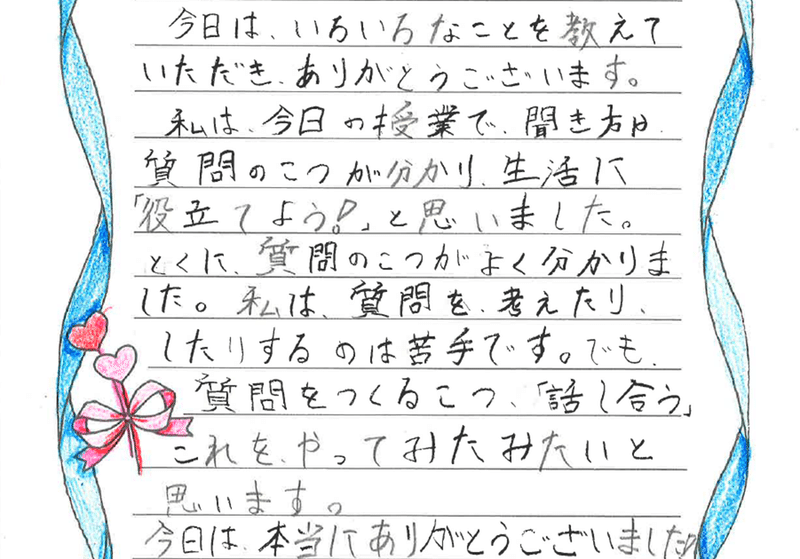 今日は、いろいろなことを教えて
いただき、ありがとうございます。
私は、今日の授業で、聞き方や
質問のこつが分かり、生活に
「役立てよう!」と思いました。
とくに、質問のこつがよく分かりま
した。私は、質問を、考えたり、
したりするのは苦手です。でも、
質問をつくるこつ、「話し合う」
これを、やってみたみたいと
思います。
今日は、本当にありがとうございました